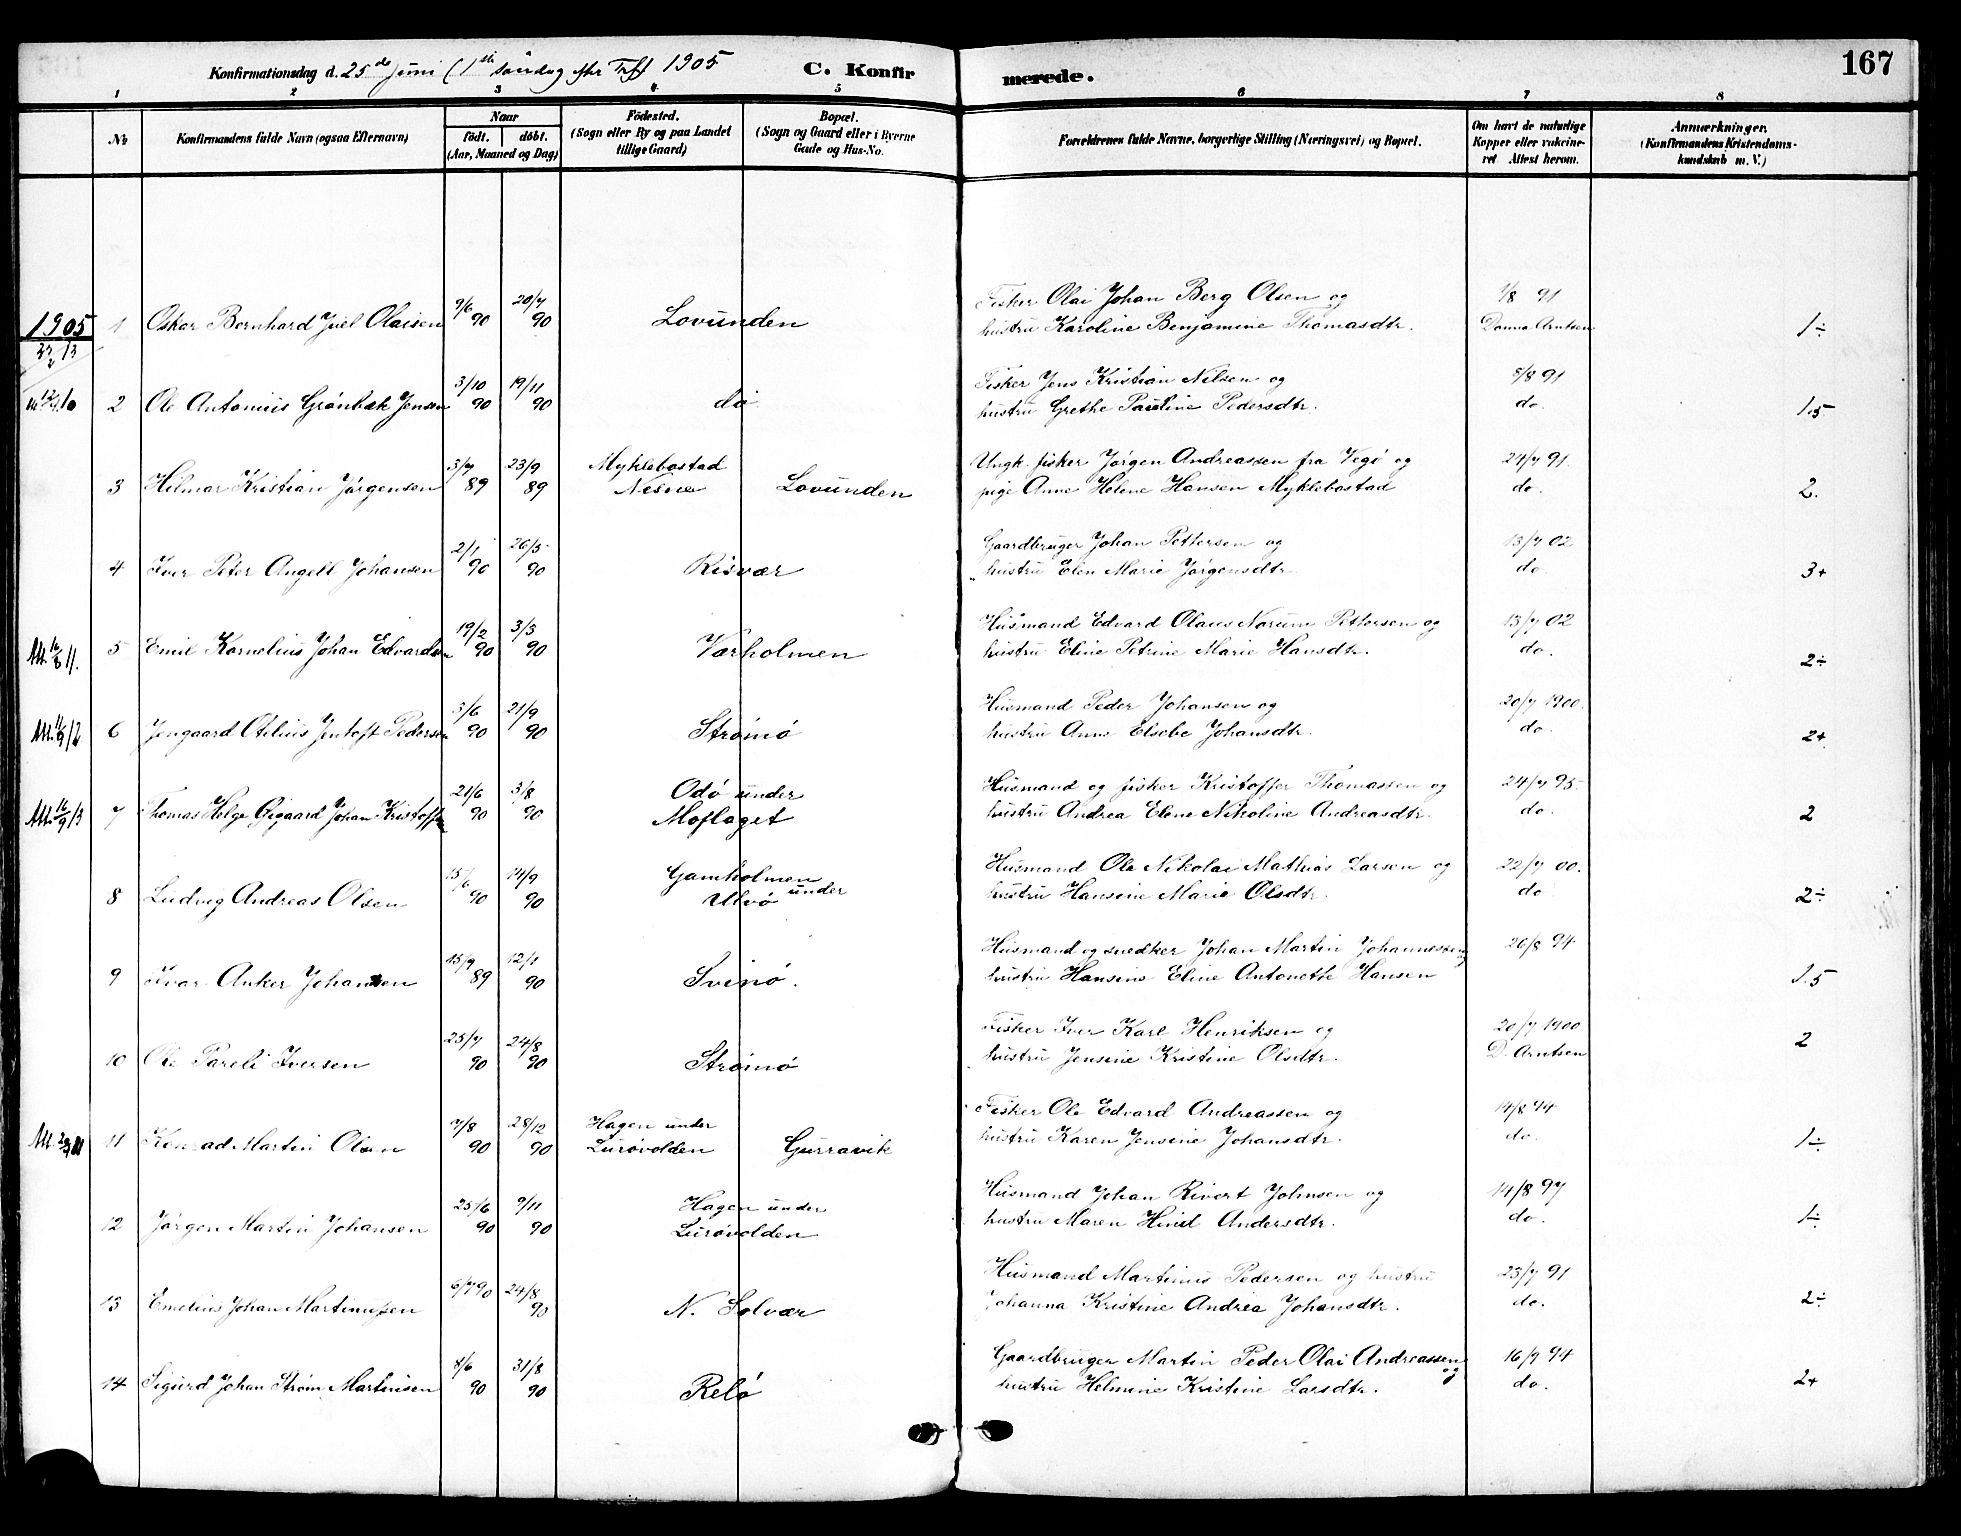 167
Konfirmationsdag d. 25de Juni (1ste søndag efter Trft 1905 C. Konfirmerede.
1 2 3 4 5 6 7 8
No Konfirmandens fulde Navn (ogsaa Efternavn) Naar født. døbt. (Aar, Maaned og Dag) Fødested. (Sogn eller By og paa Landet tillige Gaard) Bopæl. (Sogn og Gaard eller i Byerne Gade og Hus-No. Forældrenes fulde Navne, borgerlige Stilling (Næringsvei) og Bopæl. Om havt de naturlige Kopper eller vakcineret Attest herom. Anmærkninger. (Konfirmandens Kristendomskundskab m. V.)
1905
1 Oskar Bernhard Juel Olaisen 9/6 90 20/7 90 Lovunden Fisker Olai Johan Berg Olsen og 1/8 91
hustru Karoline Benjamine Thomasdtr. Donna Arntsen 1÷
2 Ole Antonius Grønbæk Jensen 3/10 90 19/11 90 do. Fisker Jens Kristian Nilsen og 8/8 91
hustru Grethe Pauline Pedersdtr. do. 1.5
3 Hilmar Kristian Jørgensen 3/7 89 23/9 89 Myklebostad Nesna Lovunden Ungk. fisker Jørgen Andreassen fra Vegø og 24/7 91.
pige Anne Helene Hansen Myklebostad do. 2.
4 Iver Peter Angell Johansen 2/1 90 26/5 90 Risvær Gaardbruger Johan Pettersen og 13/7 02
hustru Elen Marie Jørgensdtr. do. 3+
5 Emil Kornelius Johan Edvardsen 19/2 90 3/3 90 Værholmen Husmand Edvard Olaus Norum Pettersen og 13/7 02
hustru Eline Petrine Marie Hansdtr. do. 2÷
6 Jengaard Otilius Jentoft Pedersen 3/6 90 21/9 90 Strømø Husmand Peder Johansen og 20/7 1900.
hustru Anne Elsebe Johansdtr. do. 2+
7 Thomas Helge Øigaard Johan Kristoffersen 21/6 90 3/8 90 Odø under Moflaget Husmand og fisker Kristoffer Thomassen og 24/7 95
hustru Andrea Elene Nikoline Andreasdtr. do. 2
8 Ludvig Andreas Olsen 15/6 90 14/9 90 Gamholmen under Ulvø Husmand Ole Nikolai Mathias Larsen og 22/7 00.
hustru Hansine Marie Olsdtr. do 2÷
9 Ivar Anker Johansen 15/9 89 12/1 90 Svinø. Husmand og snedker Johan Martin Johannessen og 26/8 94
hustru Hansine Eline Antonette Hansen 1.5
10 Ole Pareli Iversen 25/7 90 24/8 90 Strømø Fisker Iver Karl Henriksen og 20/7 1900
hustru Jensine Kristine Olsdtr. D. Arntsen 2
11 Konrad Martin Olsen 7/8 90 28/12 90 Hagen under Lurøvolden Gurravik Fisker Ole Edvard Andreassen og 14/8 94
hustru Karen Jensine Johansdtr. do. 1÷
12 Jørgen Martin Johansen 25/6 90 9/11 90 Hagen under Lurøvolden Husmand Johan Rivert Johnsen og 14/8 97
hustru Maren Hind Andersdtr. do. 1÷
13 Emelius Johan Martinussen 6/7 90 24/8 90 N. Solvær Husmand Martinus Pedersen og hustru 23/7 91
Johanna Kristine Andrea Johansdtr. do. 2÷
14 Sigurd Johan Strøm Martinsen 8/6 90 31/8 90 Relø Gaardbruger Martin Peder Olai Andreassen og 16/9 94
hustru Helmine Kristine Larsdtr. do. 2+